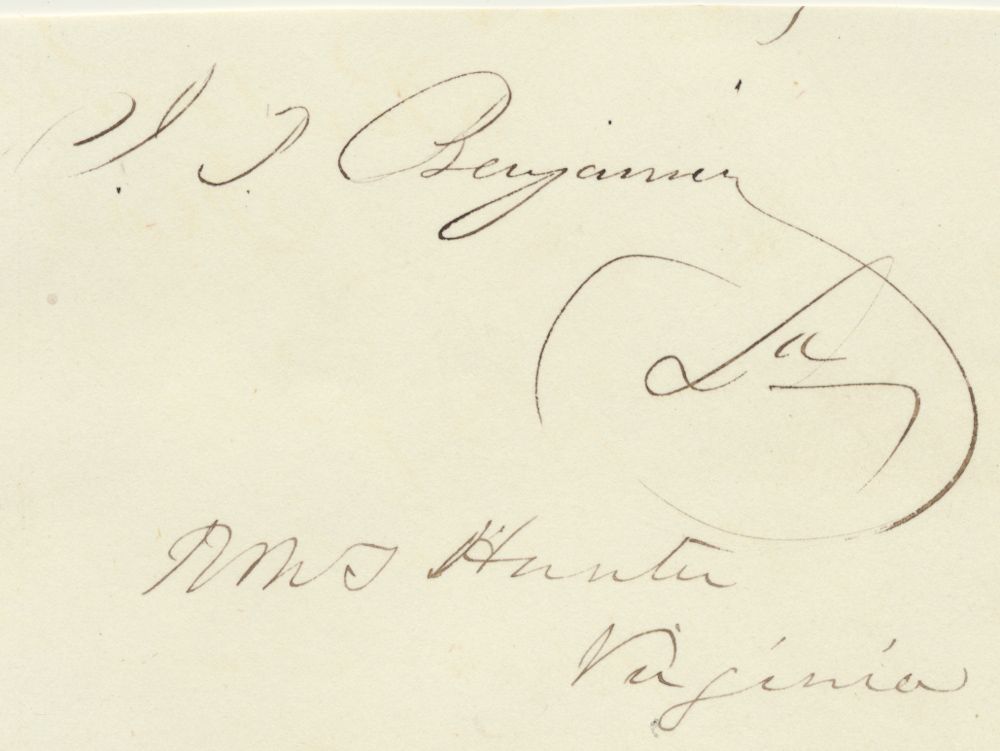 J. P. Benjamin
La
R M T Hunter
Virginia